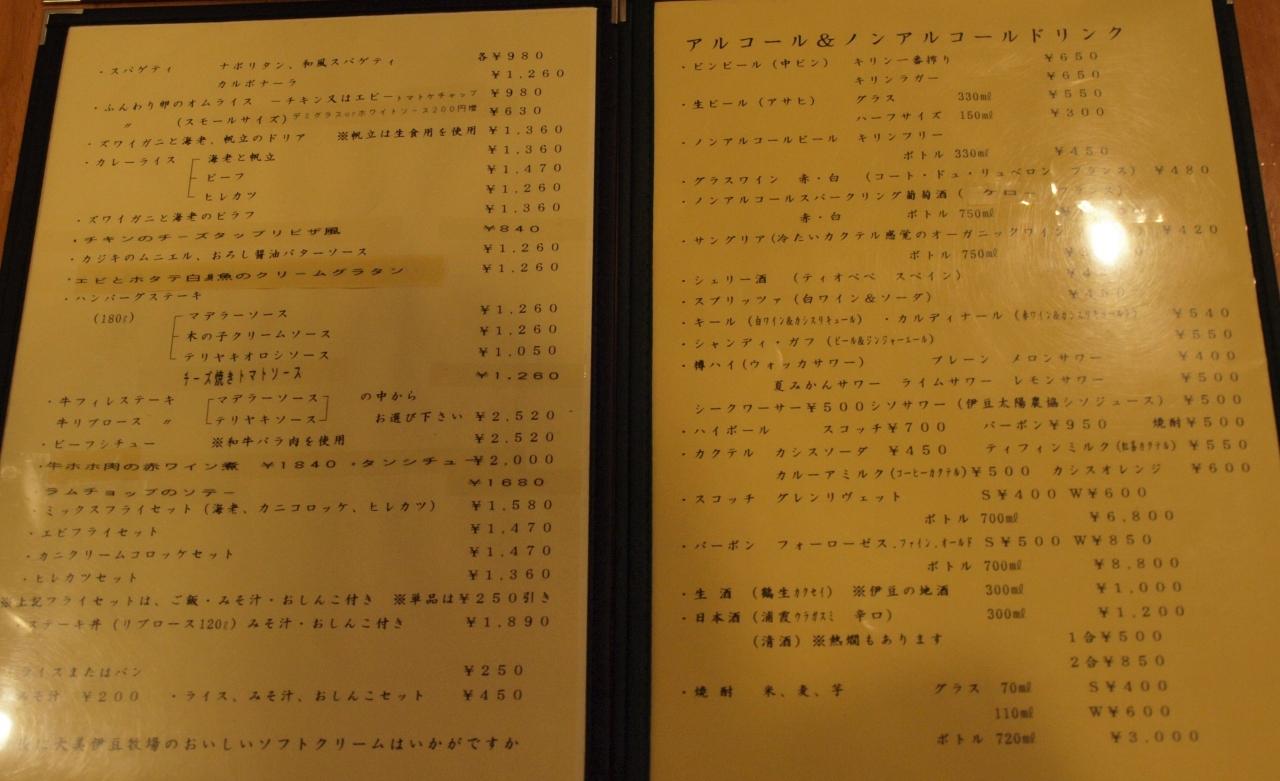 ・スパゲティ　ナポリタン、和風スパゲティ　各¥980
カルボナーラ　¥1,260
・ふんわり卵のオムライス　－チキン又はエビ－トマトケチャップ　¥980
〃　(スモールサイズ)　デミグラスorホワイトソース200円増　¥630
・ズワイガニと海老、帆立のドリア　※帆立は生食用を使用　¥1,360
・カレーライス　海老と帆立　¥1,360
ビーフ　¥1,470
ヒレカツ　¥1,260
・ズワイガニと海老のピラフ　¥1,360
・チキンのチーズタップリピザ風　¥840
・カジキのムニエル、おろし醤油バターソース　¥1,260
・エビとホタテ白身魚のクリームグラタン　¥1,260
・ハンバーグステーキ
(180g)　マデラーソース　¥1,260
木の子クリームソース　¥1,260
テリヤキオロシソース　¥1,050
チーズ焼きトマトソース　¥1,260
・牛フィレステーキ　マデラーソース　の中から
牛リブロース　〃　テリヤキソース　お選び下さい　¥2,520
・ビーフシチュー　※和牛バラ肉を使用　¥2,520
・牛ホホ肉の赤ワイン煮　¥1840　・タンシチュー　¥2,000
・ラムチョップのソテー　¥1680
・ミックスフライセット(海老、カニコロッケ、ヒレカツ)　¥1,580
・エビフライセット　¥1,470
・カニクリームコロッケセット　¥1,470
・ヒレカツセット　¥1,360
※上記フライセットは、ご飯・みそ汁・おしんこ付き　※単品は¥250引き
ステーキ丼(リブロース120g)みそ汁・おしんこ付き　¥1,890
ライスまたはパン　¥250
みそ汁　¥200　・ライス、みそ汁、おしんこセット　¥450
大美伊豆牧場のおいしいソフトクリームはいかがですか
アルコール＆ノンアルコールドリンク
・ビンビール(中ビン)　キリン一番搾り　¥650
キリンラガー　¥650
・生ビール(アサヒ)　グラス　330ml　¥550
ハーフサイズ　150ml　¥300
・ノンアルコールビール　キリンフリー
ボトル　330ml　¥450
・グラスワイン　赤・白　(コート・ドュ・リュベロン　フランス)　¥480
・ノンアルコールスパークリング葡萄酒(
赤・白　ボトル　750ml
・サングリア(冷たいカクテル感覚のオーガニックワイン　¥420
ボトル　750ml
・シェリー酒　(ティオペペ　スペイン)
・スプリッツァ(白ワイン＆ソーダ)
・キール(白ワイン＆カシスリキュール)　・カルディナール(赤ワイン＆カシスリキュール)　¥540
・シャンディ・ガフ(ビール＆ジンジャーエール)　¥550
・樽ハイ(ウォッカサワー)　プレーン　メロンサワー　¥400
夏みかんサワー　ライムサワー　レモンサワー　¥500
シークワーサー¥500シソサワー(伊豆太陽農協シソジュース)　¥500
・ハイボール　スコッチ¥700　バーボン¥950　焼酎¥500
・カクテル　カシスソーダ　¥450　ティフィンミルク(紅茶カクテル)　¥550
カルーアミルク(コーヒーカクテル)¥500　カシスオレンジ　¥600
・スコッチ　グレンリヴェット　S¥400　W¥600
ボトル　700ml　¥6,800
・バーボン　フォーローゼス.ファイン.オールド　S¥500　W¥850
ボトル　700ml　¥8,800
・生酒　(鶏生カクセイ)　※伊豆の地酒　300ml　¥1,000
・日本酒(浦霞ウラガスミ　辛口)　300ml　¥1,200
(清酒)※熱燗もあります　1合¥500
2合¥850
・焼酎　米、麦、芋　グラス　70ml　S¥400
110ml　W¥600
ボトル　720ml　¥3,000